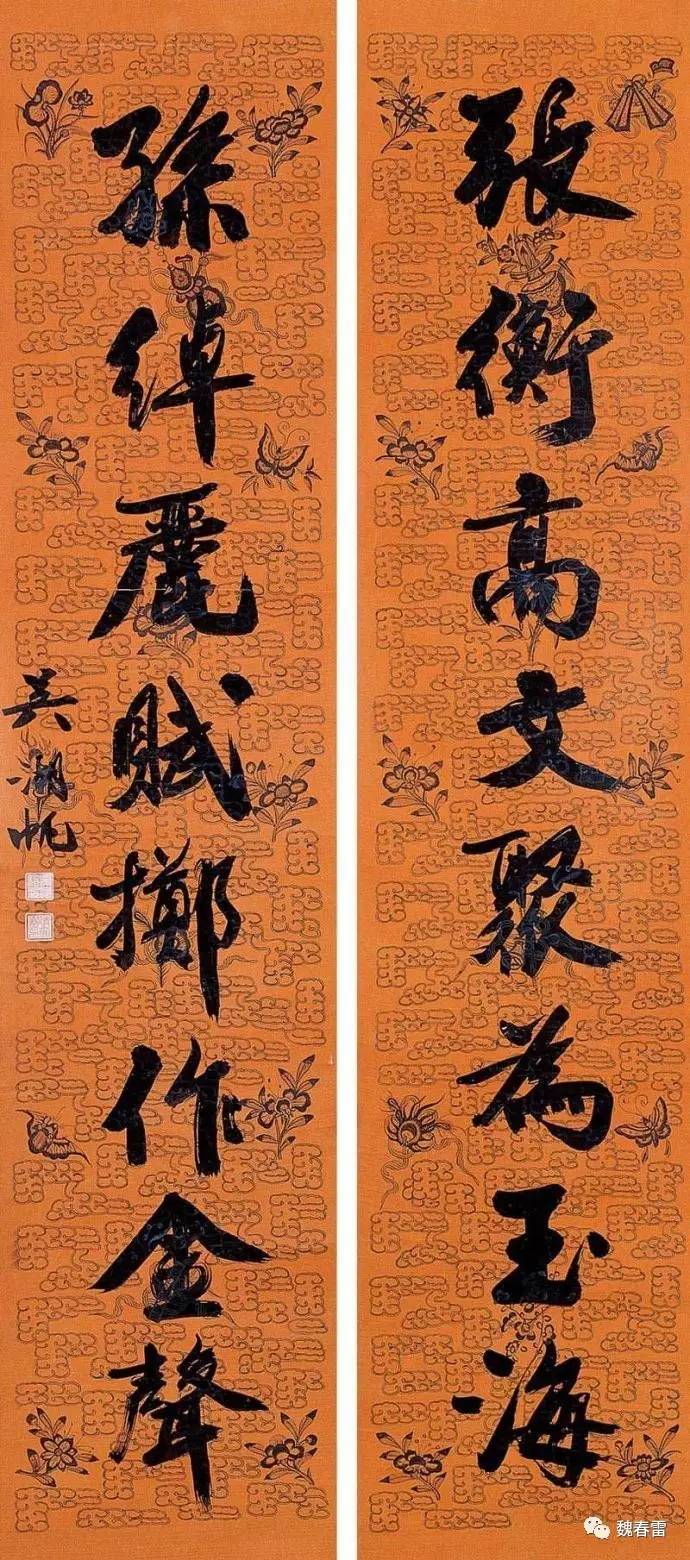 張衡高文聚為玉海
孫綽麗賦擲作金聲
吴湖帆
魏春雷